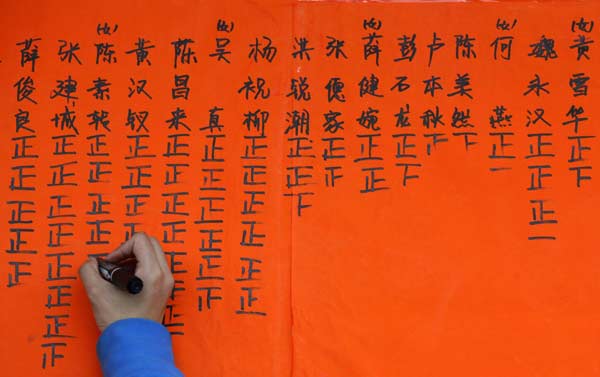 (女)黄雪华正正下
魏永汉正正正一
(女)何燕正一
陈美然下
卢本秋
彭石龙正下
(女)薛健婉正正
张便家正
洪锐潮正正下
杨祝柳正正正正正正
(女)吴真正正正正正
陈昌来正正正正正
黄汉钗正正正
(女)陈素转正正正正
张建城正正正正正正正
薛俊良正正正正